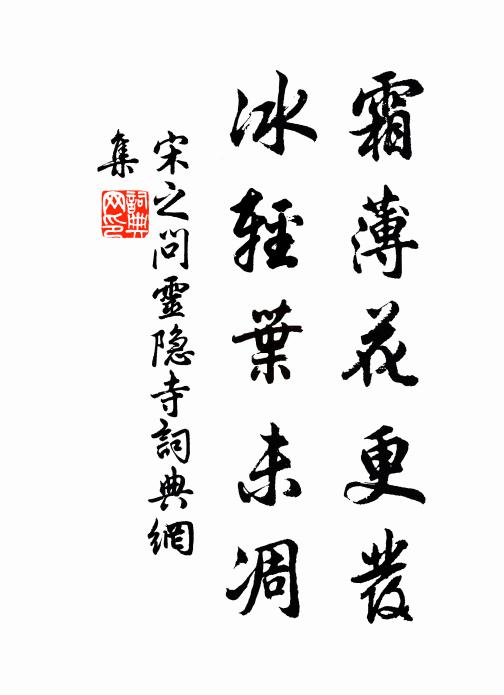 霜薄花更發
冰輕葉未凋
宋之问靈隐寺詞典網
集
詞典
网印